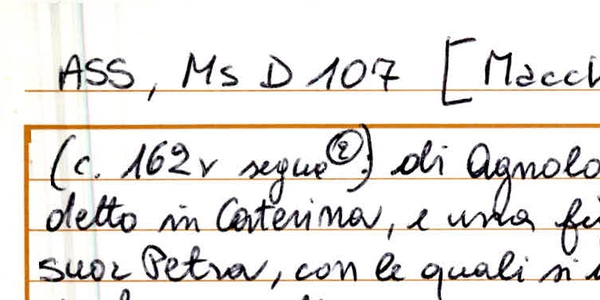 ASS, Ms D 107 [Macch
(c. 162v segue②) di Agnolo
detto in Caterina, e una fi
suor Petra, con le quali si